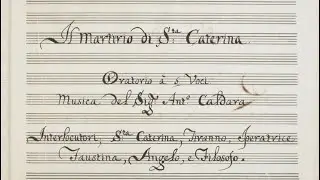 Il Martirio di S.ta Caterina
Oratorio à 5 Voci
Musica del Sig.r Ant.o Caldara
Interlocutori, S.ta Caterina, Tiranno, Iperatrice
Faustina, Angelo, e Filosofo.